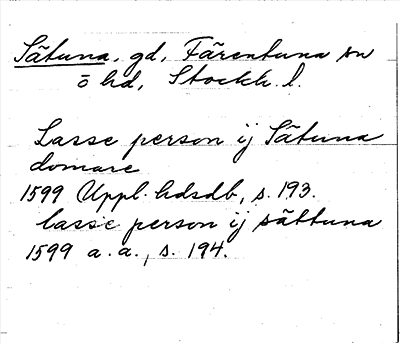 Sätuna, gd, Färentuna sn
ö hd, Stockh. l.
Lasse person ij Sätuna
domare
1599 Uppl. hdsdb, s. 193.
lasse person ij sättuna
1599 a. a., s. 194.